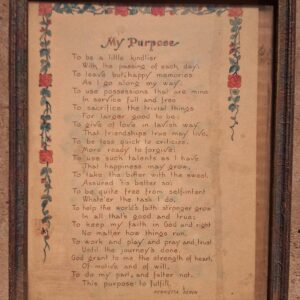 My Purpose
To be a little kindlier
With the passing of each day;
To leave but happy memories
As I go along my way.
To use possessions that are mine
In service full and free
To sacrifice the trivial things
For larger good to be;
To give of love in lavish way
That friendships true may live,
To be less quick to criticize,
More ready to forgive;
To use such talents as I have
That happiness may grow,
To take the bitter with the sweet,
Assured 'tis better so;
To be quite free from self-intent
Whate'er the task I do,
To help the world's faith stronger grow
In all that's good and true;
To keep my faith in God and right
No matter how things run,
To work and play and pray and trust
Until the journey's done.
God grant to me the strength of heart,
Of motive and of will,
To do my part, and falter not.
This purpose to fulfill.